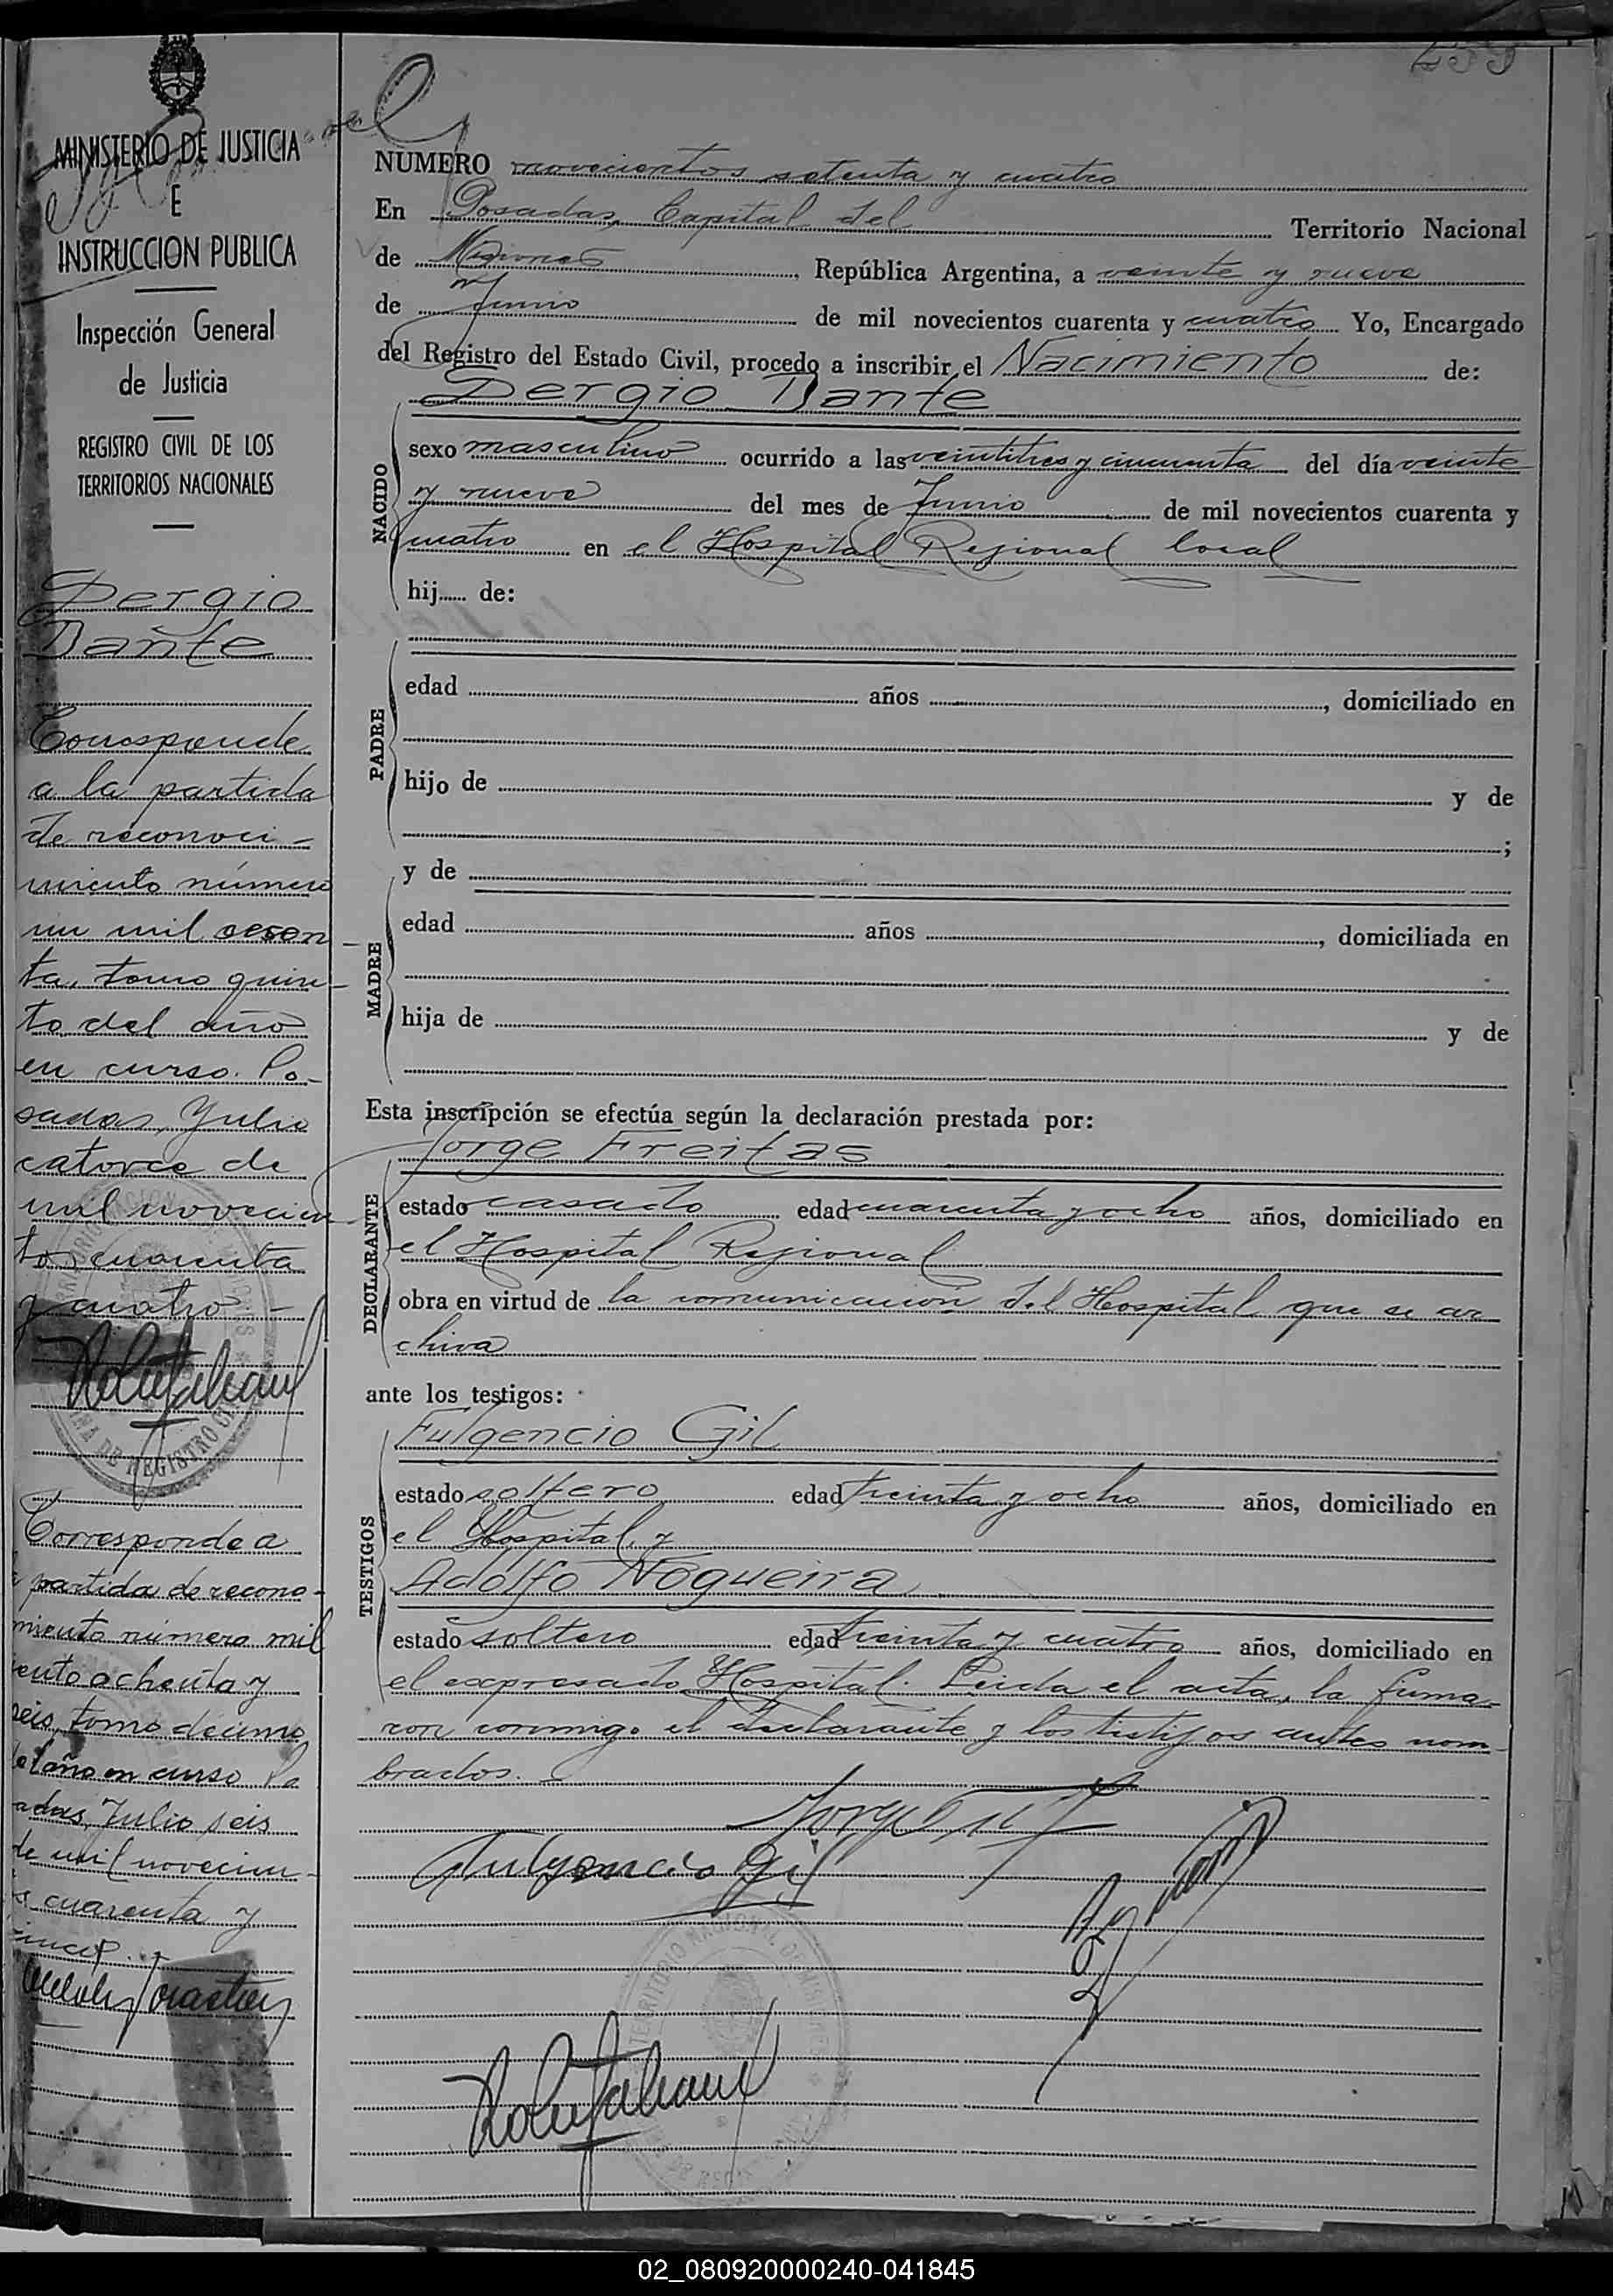 239
MINISTERIO DE JUSTICIA
E
INSTRUCCION PUBLICA
Inspección General
de Justicia
REGISTRO CIVIL DE LOS
TERRITORIOS NACIONALES
Sergio
Dante
Corresponde
a la partida
de reconoci-
miento número
un mil sesen-
ta, tomo quin-
to del año
en curso. Po-
sadas, Julio
catorce de
mil novecien-
tos cuarenta
y cuatro -
Corresponde a
partida de recono-
miento número mil
ento ochenta y
seis, tomo décimo
del año en curso Po
adas, Julio seis
de mil novecien-
s cuarenta y
cinco.-
NUMERO novecientos setenta y cuatro
En Posadas, Capital del Territorio Nacional
de Misiones, República Argentina, a veinte y nueve
de Junio de mil novecientos cuarenta y cuatro Yo, Encargado
del Registro del Estado Civil, procedo a inscribir el Nacimiento de:
Sergio Dante
NACIDO
sexo masculino ocurrido a las veintitres y cincuenta del día veinte
y nueve del mes de Junio de mil novecientos cuarenta y
cuatro en el Hospital Regional local
hij...... de:
PADRE
edad años , domiciliado en
hijo de y de
;
y de
MADRE
edad años , domiciliada en
hija de y de
Esta inscripción se efectúa según la declaración prestada por:
Jorge Freitas
DECLARANTE
estado casado edad cuarenta y ocho años, domiciliado en
el Hospital Regional
obra en virtud de la comunicación del Hospital que se ar
chiva
ante los testigos:
Fulgencio Gil
TESTIGOS
estado soltero edad treinta y ocho años, domiciliado en
el Hospital, y
Adolfo Nogueira
estado soltero edad treinta y cuatro años, domiciliado en
el expresado Hospital. Leida el acta, la firma-
ron conmigo el declarante y los testigos antes nom-
brados.-
Fulgencio Gil
02_080920000240-041845